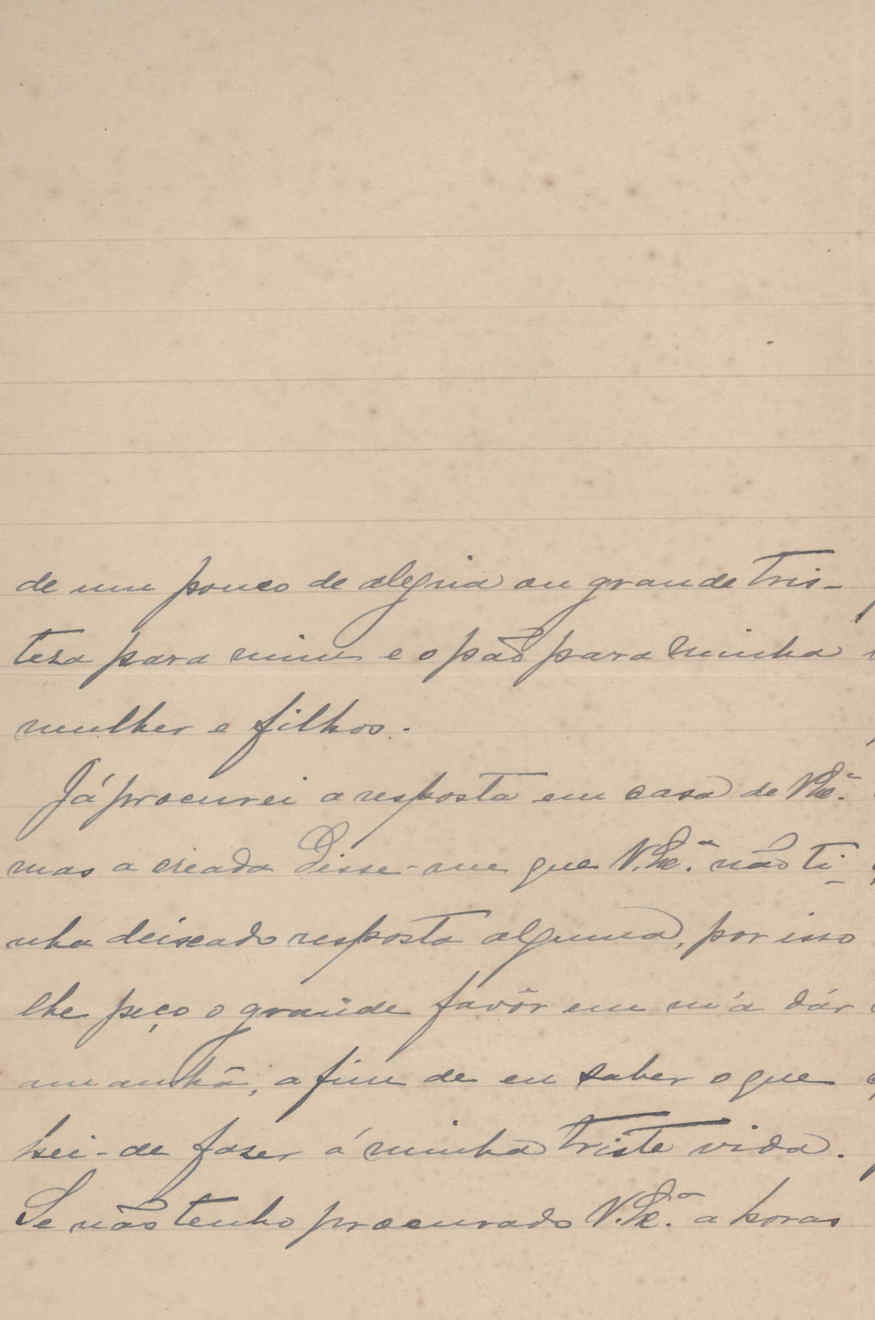 de um pouco de alegria ou grande tris-
tesa para mim e o pão para minha
mulher e filhos.
Já procurei a resposta em casa de V.Ex.ª
mas a creada disse-me que V.Ex.ª não ti-
nha deixado resposta alguma, por isso
lhe peço o grande favôr em m'a dár
amanhã, a fim de eu saber o que
hei-de faser á minha triste vida.
Se não tenho procurado V.Ex.ª a horas